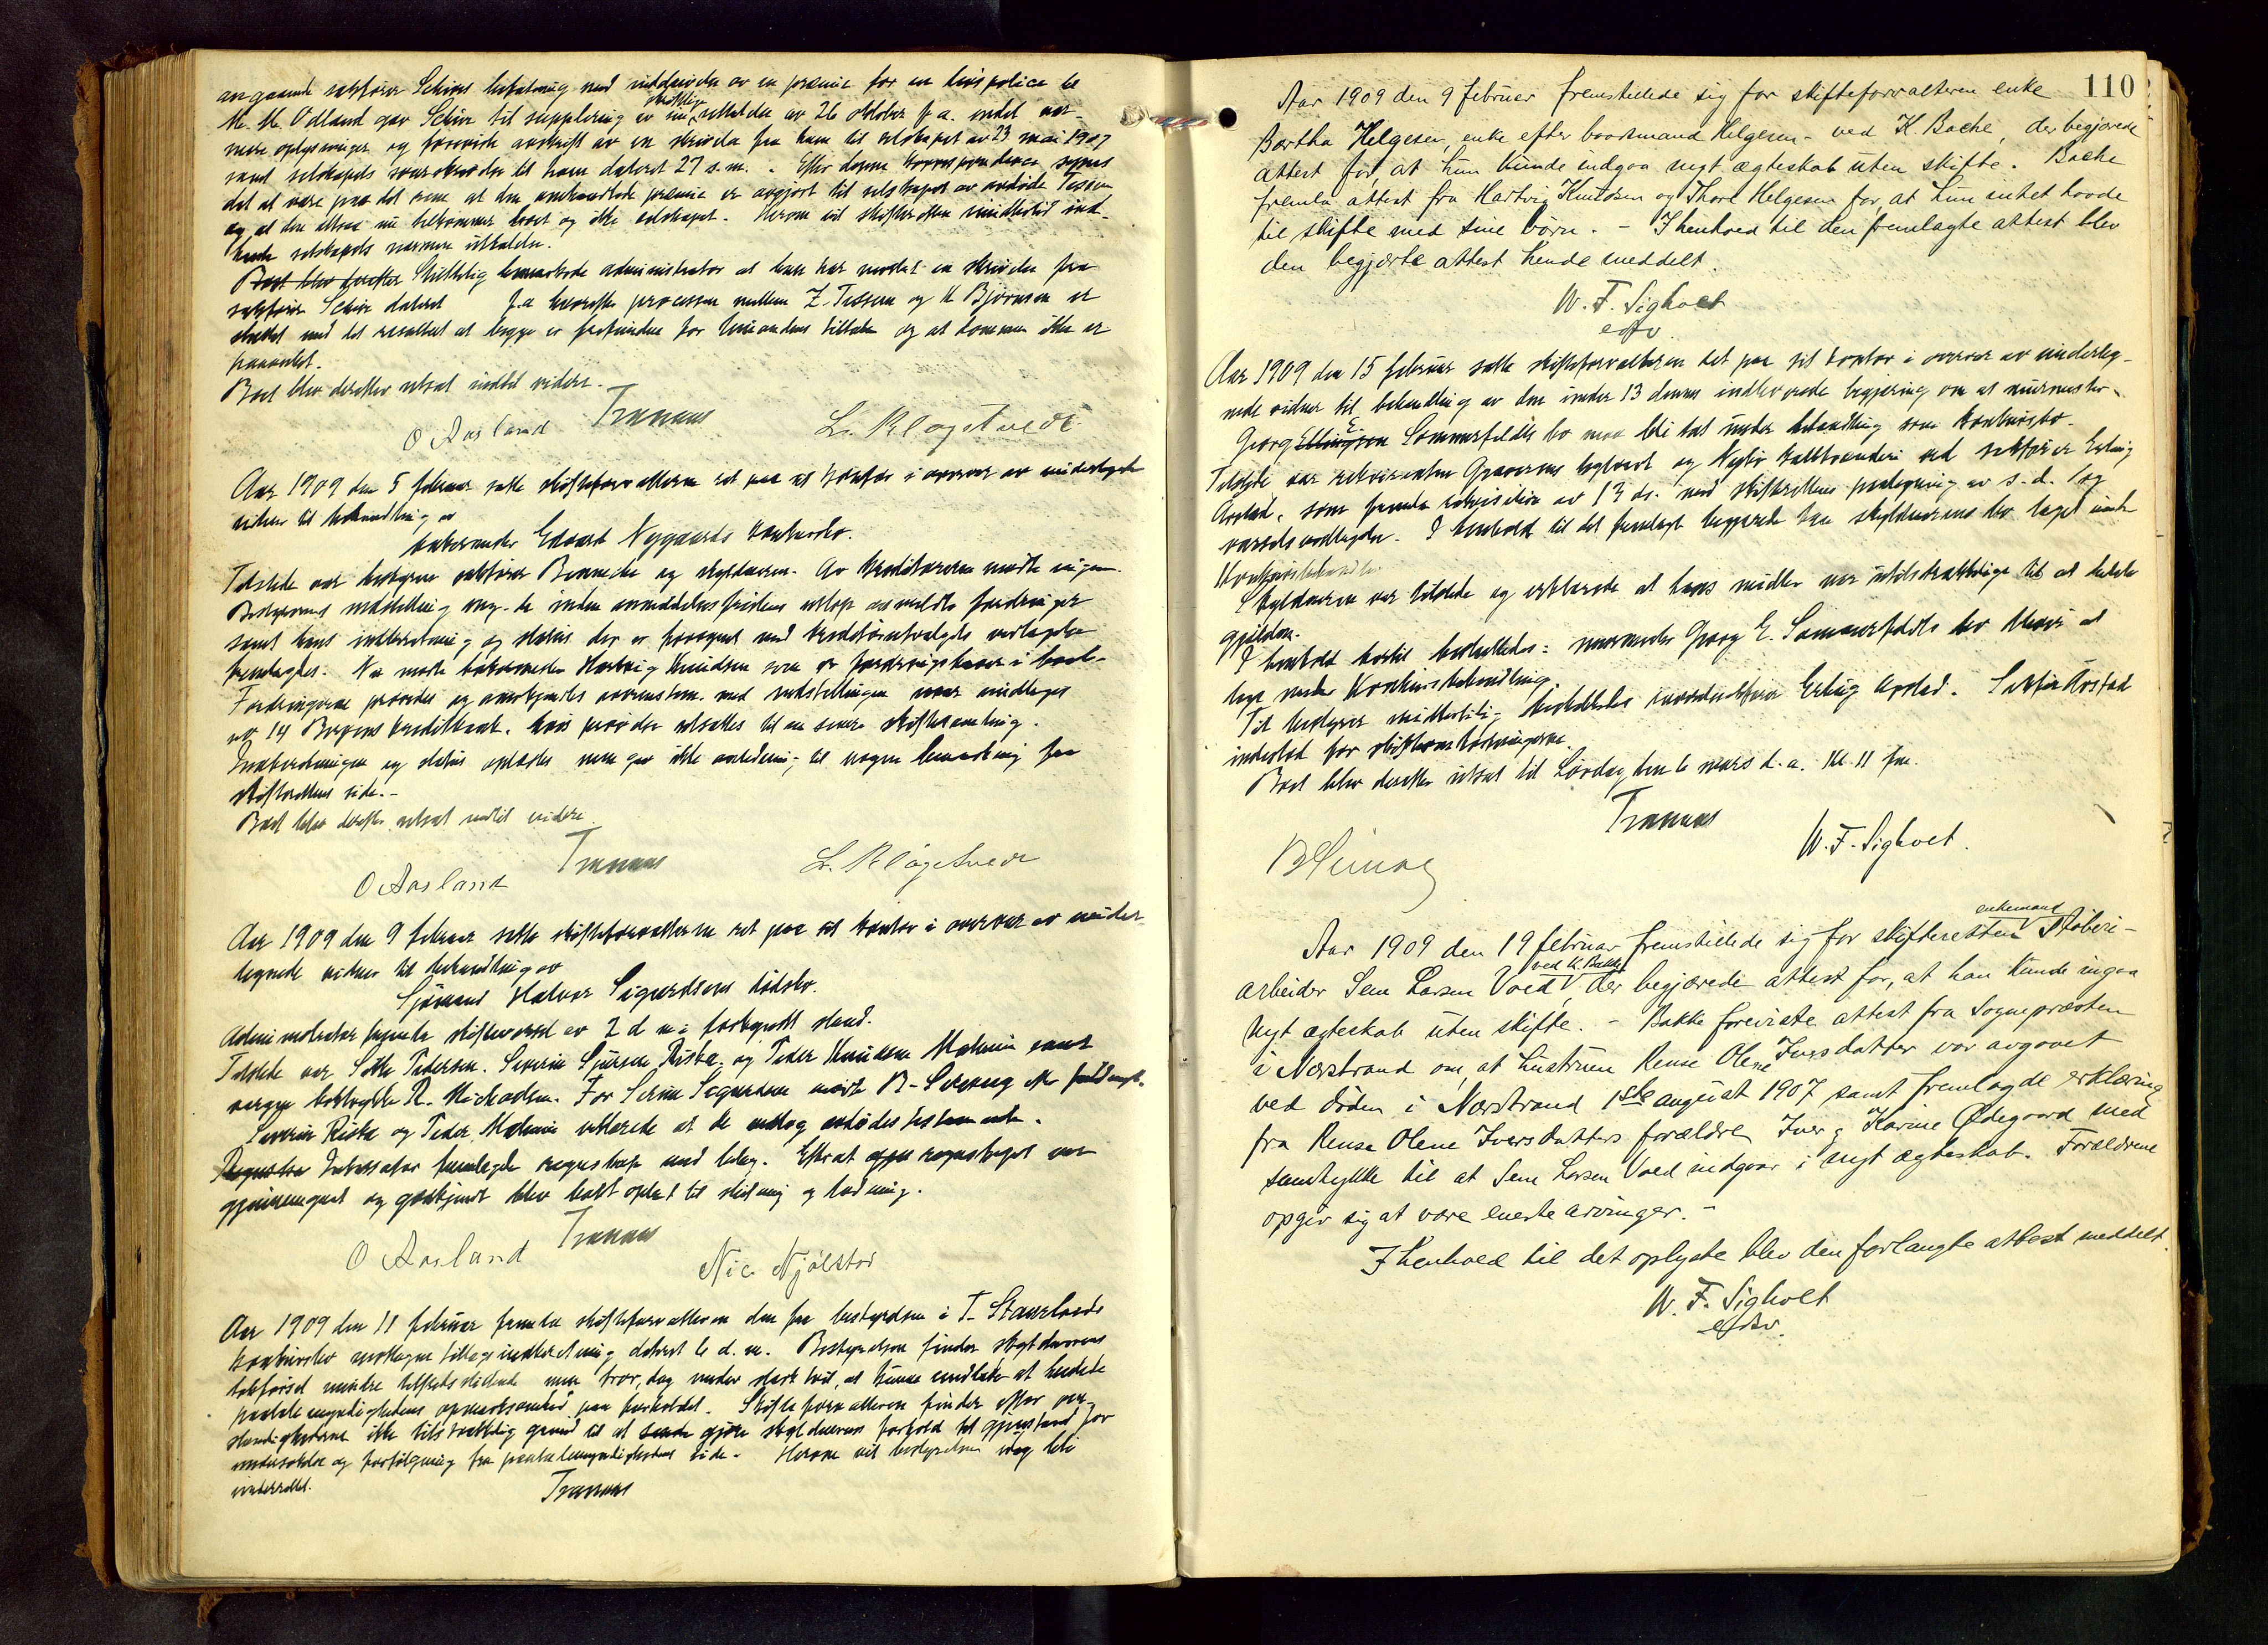 angaaende sakfører Schiøs befatning med inddrivelse av en præmie for en livspolice til
M. M. Ødland gav Schiøs til supplering av sin skriftlig uttalelse av 26 oktober f. a. endel nær-
mere oplysninger og foreviste avskrift av en skrivelse fra ham til selskapet av 23 mai 1907
samt selskapets svarskrivelse til ham dateret 27 s. m. . Efter denne korrespondance synes
det at være paa det rene at den omhandlede præmie er avgjort til selskapet av avdøde Tessem
og at den altsaa nu tilkommer boet og ikke selskapet. Herom vil skifteretten imidlertid ind-
hente selskapets nærmere uttalelse.
Boet blev derefter Skriftlig bemærkede administrator at han har modtat en skrivelse fra
sakfører Schiøs dateret f. a. hvorefter processen mellem Z. Tessem og K Bjørnsen er
sluttet med det resultat at begge er frifundne for hinandens tiltale og at dommen ikke er
paaanket.
Boet blev derefter utsat indtil videre.
O Aasland Tranaas L. Kløgetvedt
Aar 1909 den 5 februar satte skifteforvalteren ret paa sit kontor i overvær av undertegnede
vidner til behandling av
kakerander Edvard Nygaards konkursbo.
Tilstede var bestyreren sakfører Bennecke og skyldneren. Av kreditorerne mødte ingen.
Bestyrerens indstilling ang. de inden anmeldelsesfristens utløp anmeldte fordringer
samt hans indberetning og status der er forsynet med kreditorutvalgets vedtagelse
fremlagdes. Nu mødte Hartvig Knudsen som er fordringshaver i boet.
Fordringerne prøvedes og anerkjendes overensstem. med indstillingen undtagen
nr 14 Bergens Kreditbank, hvis prøvelse utsattes til en senere skiftesamling.
Indberetningen og status oplæstes men gav ikke anledning til nogen bemerkning fra
skifterettens side. -
Boet blev derefter utsat indtil videre.
O Aasland Tranaas L. Kløgetvedt
Aar 1909 den 9 februar satte skifteforvalteren ret paa sit kontor i overvær av under-
tegnede vidner til behandling av
Sjømand Halvor Sigurdsens dødsbo.
Administrator fremla skiftevarsel av 2 d. m. i forkyndt stand.
Tilstede var Sitte Pedersen. Severin Sjursen Riska og Peder Knudsen Malmin samt
verge R. Michaelsen. For Serine Sigurdsen mødte B. efter fuldmagt.
Severin Riska og Peder Malmin erklærede at de vedtog avdødes testamente.
Regnsska Inkassator fremlagde regnskap med bilag. Efterat regnskapet var
gjennemgaat og godkjendt blev boet optat til slutning og lodning.
O Aasland Tranaas Nic Njølstad
Aar 1909 den 11 februar fremla skifteforvalteren den fra bestyrelsen i T. Stauelands
konkursbo mottagne tillægsindberetning dateret 6 d. m. Bestyrelsen finder skyldnerens
bokførsel mindre tilfredsstillende men tror, dog under sterk tvil, at kunne undlate at henlede
paatalemyndighetens opmerksomhed paa forholdet. Skifteforvalteren finder efter om-
stændighederne ikke tilstrækkelig grund til at sende gjøre skyldnerens forhold til gjenstand for
undersøkelse og forfølgning fra paatalemyndighetens side. - Herom vil bestyrelsen idag bli
underrettet.
Tranaas
110
Aar 1909 den 9 februar fremstillede sig for skifteforvalteren enke
Bertha Helgesen, enke efter baadsmand Helgesen - ved K. Bache, der begjærede
attest for, at hun kunde indgaa nyt ægteskab uten skifte. Bache
fremla attest fra Hartvig Knudsen og Thore Helgesen for at hun intet havde
til skifte med sine børn. - I henhold til den fremlagte attest blev
den begjærte attest hende meddelt.
W. F. Sigholt
edsv
Aar 1909 den 15 februar satte skifteforvalteren ret paa sit kontor i overvær av underteg-
nede vidner til behandling av den under 13 dennes indleverede begjæring om at murmester
Georg Ellingsen E. Sommerfeldts bo maa bli tat under behandling som konkursbo.
Tilstede var rekvirenten Graverens teglverk og Nylio kalkbrænderi ved sakfører Erling
Aarstad, som fremla rekvisition av 13 ds. med skifterettens paategning av s. d. og
varsels vedtagelse. I henhold til det fremlagte begjærede han skyldnerens bo taget under
Konkursbehandling.
Skyldneren var tilstede og erklærede at hans midler var utilstrækkelige til at dække
gjælden.
I henhold hertil besluttedes: murmester Georg E. Sommerfeldts bo bliver at
tage under Konkursbehandling.
Til bestyrer midlertidig beskikkedes overretssakfører Erling Aarstad. Sakfør Aarstad
indestod for skifteomkostningerne.
Boet blev derefter utsat til Lørdag den 6 mars d. a. kl. 11 fm.
Tranaas
W. F. Sigholt.
Aar 1909 den 19 februar fremstillede sig for skifteretten enkemand Støberi-
arbeider Sem Larsen Voed ved K. Bakke, der begjærede attest for, at han kunde ingaa
nyt ægteskab uten skifte. - Bakke foreviste attest fra Sognepræsten
i Nærstrand om, at hustruen Rense Olene Iversdatter var avgaaet
ved døden i Nærstrand 1ste august 1907 samt fremlagde erklæring
fra Rense Olene Iversdatters forældre, Iver og Karine Ødegaard med
samtykke til at Sem Larsen Voed indgaar i nyt ægteskab. Forældrene
opgir sig at være eneste arvinger. -
I henhold til det oplyste blev den forlangte attest meddelt.
W. F. Sigholt
edsv.